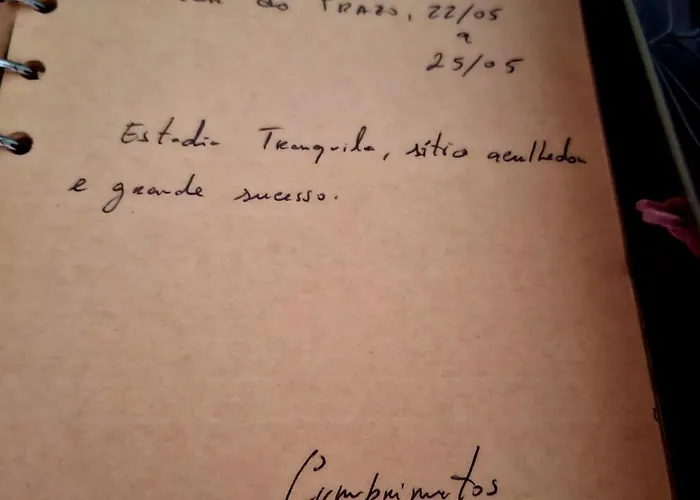 do PRAZO, 22/05
a
25/05
Estadia Tranquila, sítio acolhedor
e grande sucesso.
Cumprimetos